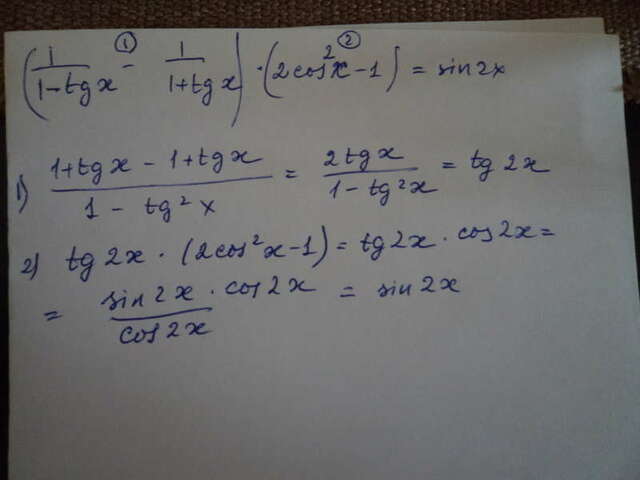 (1/(1-tgx) ① - 1/(1+tgx)) · ② (2cos²x-1) = sin2x
1) (1+tgx - 1+tgx)/(1 - tg²x) = 2tgx/(1-tg²x) = tg2x
2) tg2x · (2cos²x-1) = tg2x · cos2x =
= sin2x · cos2x/cos2x = sin2x